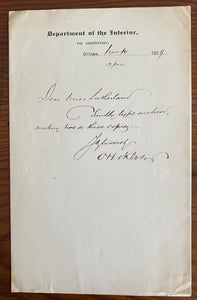 Department of the Interior,
THE OBSERVATORY,
OTTAWA, Nov. 10 190
Dear Miss Sutherland
Kindly type enclosed,
making two or three copies.